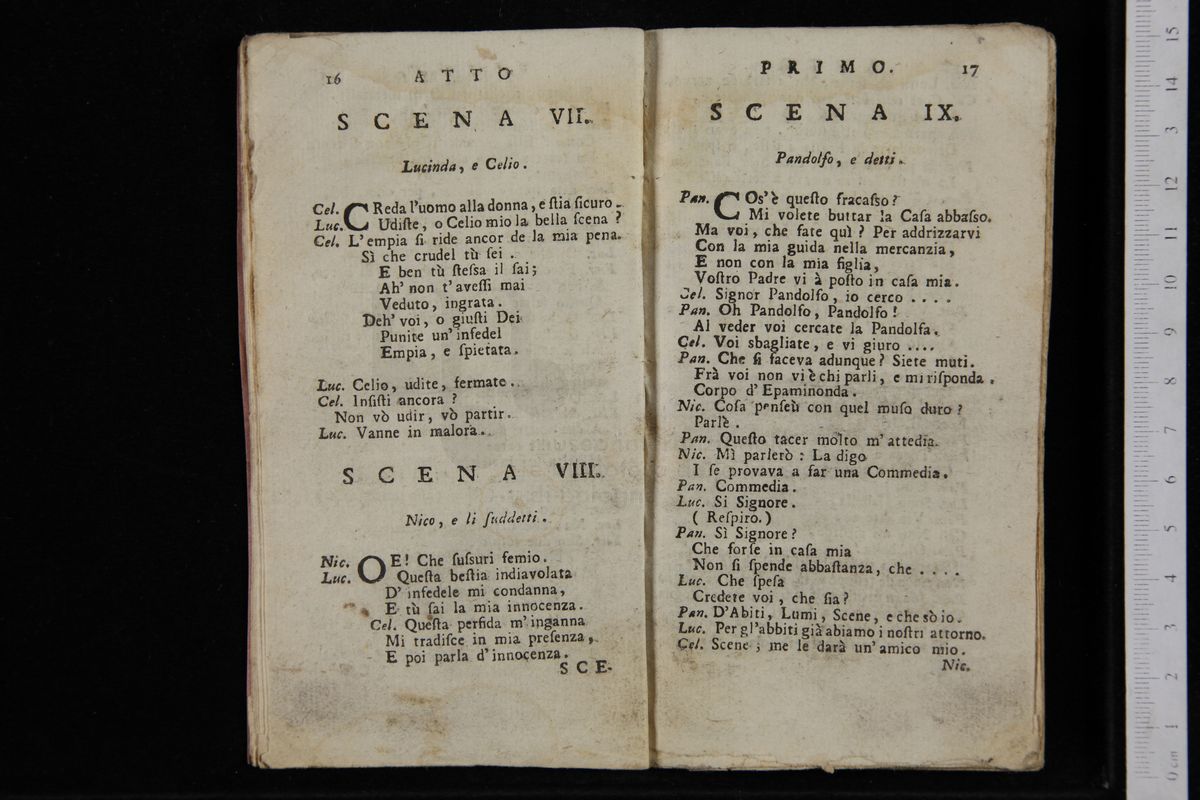 16 ATTO
SCENA VII.
Lucinda, e Celio.
Cel. CReda l'uomo alla donna, e ſtia ſicuro.
Luc. Udiſte, o Celio mio la bella ſcena?
Cel. L'empia ſi ride ancor de la mia pena.
Sì che crudel tù ſei.
E ben tù ſteſsa il ſai;
Ah' non t'aveſſi mai
Veduto, ingrata.
Deh' voi, o giuſti Dei
Punite un'infedel
Empia, e ſpietata.
Luc. Celio, udite, fermate.
Cel. Inſiſti ancora?
Non vò udir, vò partir.
Luc. Vanne in malora.
SCENA VIII.
Nico, e li ſuddetti.
Nic. OE! Che ſuſsuri femio.
Luc. Queſta beſtia indiavolata
D'infedele mi condanna,
E tù ſai la mia innocenza.
Cel. Queſta perfida m'inganna
Mi tradiſce in mia preſenza,
E poi parla d'innocenza.
SCE-
PRIMO. 17
SCENA IX.
Pandolfo, e detti.
Pan. COs'è queſto fracaſso?
Mi volete buttar la Caſa abbaſso.
Ma voi, che fate quì? Per addrizzarvi
Con la mia guida nella mercanzia,
E non con la mia figlia,
Voſtro Padre vi à poſto in caſa mia.
Cel. Signor Pandolfo, io cerco ....
Pan. Oh Pandolfo, Pandolfo!
Al veder voi cercate la Pandolfa.
Cel. Voi sbagliate, e vi giuro ....
Pan. Che ſi faceva adunque? Siete muti.
Frà voi non vi è chi parli, e mi riſponda.
Corpo d'Epaminonda.
Nic. Coſa penſeù con quel muſo duro?
Parlè.
Pan. Queſto tacer molto m'attedia.
Nic. Mì parlerò: La digo
I ſe provava a far una Commedia.
Pan. Commedia.
Luc. Si Signore.
(Reſpiro.)
Pan. Sì Signore?
Che forſe in caſa mia
Non ſi ſpende abbaſtanza, che ....
Luc. Che ſpeſa
Credete voi, che ſia?
Pan. D'Abiti, Lumi, Scene, e che sò io.
Luc. Per gl'abbiti già abiamo i noſtri attorno.
Cel. Scene; me le darà un'amico mio.
Nic.
15
14
13
12
11
10
9
8
7
6
5
4
3
2
1
0 cm